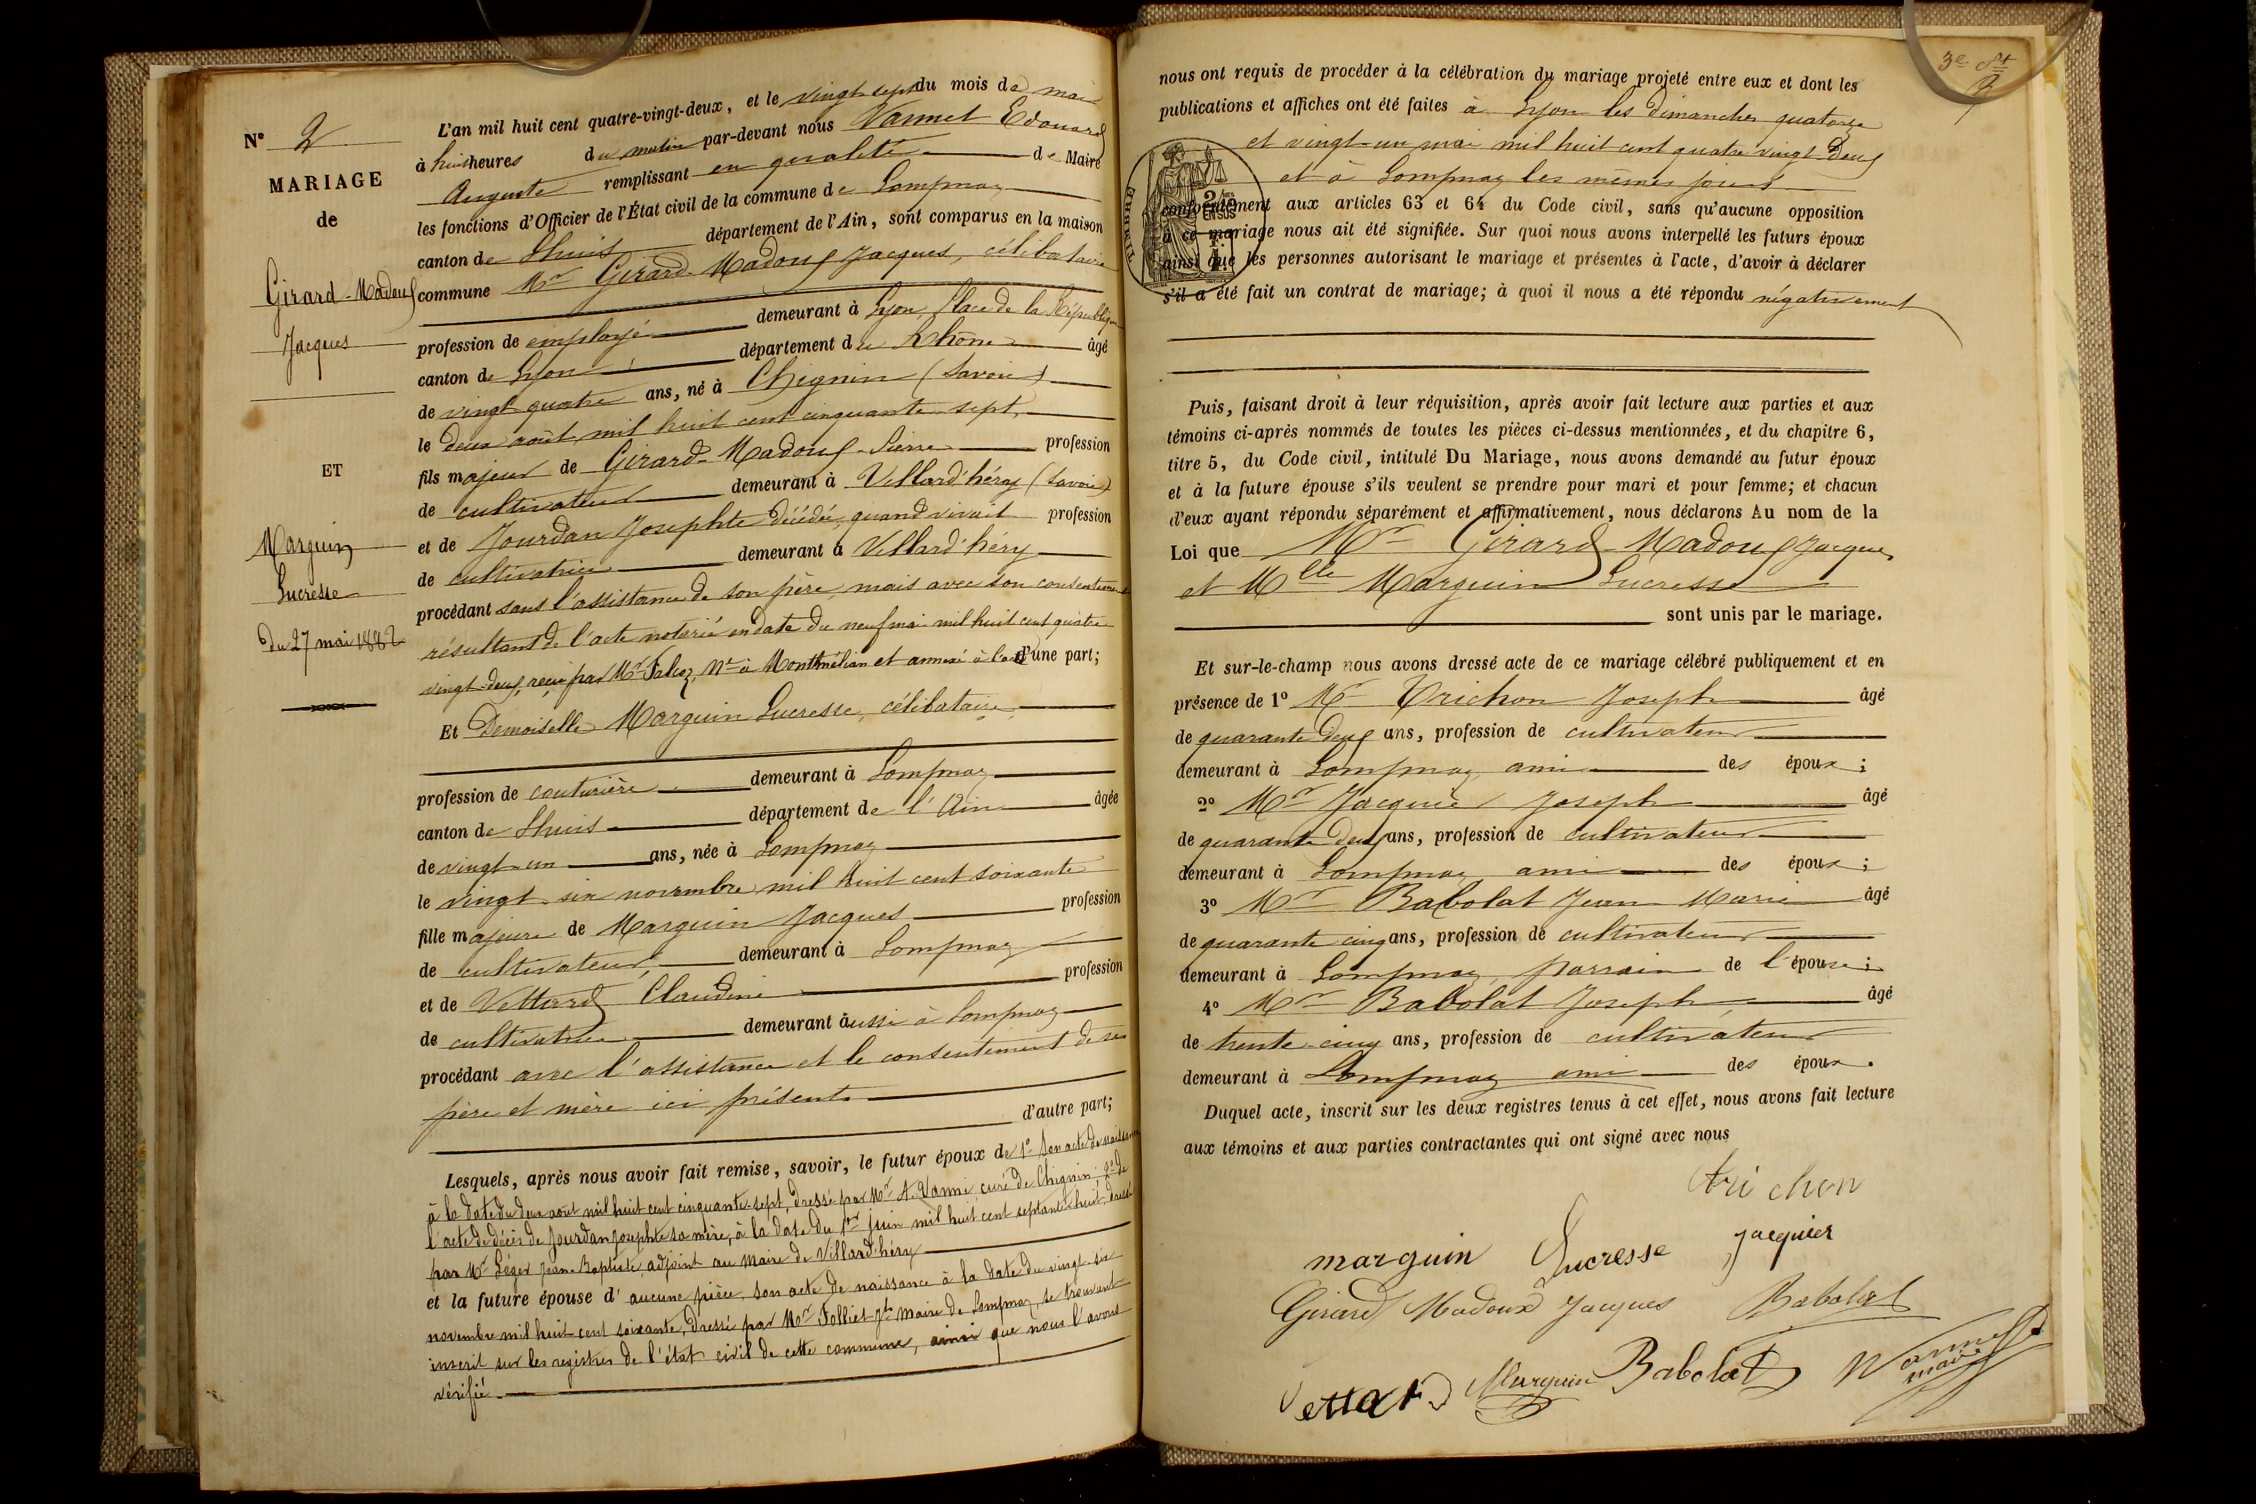 N° 2
MARIAGE
de
Girard-Madoux
Jacques
ET
Marguin
Lucresse
du 27 mai 1882
L'an mil huit cent quatre-vingt-deux, et le vingt sept du mois de mai
à huit heures du matin par-devant nous Vannet Edouard
Auguste remplissant en qualité de Maire
les fonctions d'Officier de l'État civil de la commune de Lompnaz
canton de Lhuis département de l'Ain, sont comparus en la maison
commune Mr Girard-Madoux Jacques, célibataire
profession de employé demeurant à Lyon, place de la République
canton de Lyon département du Rhône âgé
de vingt quatre ans, né à Chignin (Savoie)
le deux août mil huit cent cinquante-sept,
fils majeur de Girard-Madoux Pierre profession
de cultivateur demeurant à Villard'héry (Savoie)
et de Jourdan Josephte décédée, quand vivait profession
de cultivatrice demeurant à Villard'héry
procédant sans l'assistance de son père, mais avec son consentement
résultant de l'acte notarié en date du neuf mai mil huit cent quatre
vingt-deux, reçu par Mr Falcoz, Nre à Montmélian et annexé à l'acte d'une part;
Et Demoiselle Marguin Lucresse, célibataire,
profession de couturière demeurant à Lompnaz
canton de Lhuis département de l'Ain âgée
de vingt-un ans, née à Lompnaz
le vingt-six novembre mil huit cent soixante
fille majeure de Marguin Jacques profession
de cultivateur demeurant à Lompnaz
et de Vettard Claudine profession
de cultivatrice demeurant aussi à Lompnaz
procédant avec l'assistance et le consentement de ses
père et mère ici présents
d'autre part;
Lesquels, après nous avoir fait remise, savoir, le futur époux de 1° Son acte de naissance
à la date du deux août mil huit cent cinquante-sept, dressé par Mr A. Vanni curé de Chignin; 2° de
l'acte de décès de Jourdan Josephte sa mère, à la date du 1er juin mil huit cent septante-huit, dressé
par Mr Léger Jean-Baptiste, adjoint au Maire de Villard'héry
et la future épouse d'aucune pièce, son acte de naissance à la date du vingt-six
novembre mil huit cent soixante, dressé par Mr Folliet Jh Maire de Lompnaz, se trouvant
inscrit sur les registres de l'état civil de cette commune, ainsi que nous l'avons
vérifié.
nous ont requis de procéder à la célébration du mariage projeté entre eux et dont les
publications et affiches ont été faites à Lyon les dimanches quatorze
et vingt-un mai mil huit cent quatre vingt-deux
et à Lompnaz les mêmes jours
conformément aux articles 63 et 64 du Code civil, sans qu'aucune opposition
à ce mariage nous ait été signifiée. Sur quoi nous avons interpellé les futurs époux
ainsi que les personnes autorisant le mariage et présentes à l'acte, d'avoir à déclarer
s'il a été fait un contrat de mariage; à quoi il nous a été répondu négativement
TIMBRE
2/10es
EN SUS
Puis, faisant droit à leur réquisition, après avoir fait lecture aux parties et aux
témoins ci-après nommés de toutes les pièces ci-dessus mentionnées, et du chapitre 6,
titre 5, du Code civil, intitulé Du Mariage, nous avons demandé au futur époux
et à la future épouse s'ils veulent se prendre pour mari et pour femme; et chacun
d'eux ayant répondu séparément et affirmativement, nous déclarons Au nom de la
Loi que Mr Girard-Madoux Jacques
et Mlle Marguin Lucresse
sont unis par le mariage.
Et sur-le-champ nous avons dressé acte de ce mariage célébré publiquement et en
présence de 1° Mr Trichon Joseph âgé
de quarante deux ans, profession de cultivateur
demeurant à Lompnaz, ami des époux;
2° Mr Jacquier Joseph âgé
de quarante deux ans, profession de cultivateur
demeurant à Lompnaz, ami des époux;
3° Mr Babolat Jean Marie âgé
de quarante cinq ans, profession de cultivateur
demeurant à Lompnaz, parrain de l'épouse;
4° Mr Babolat Joseph, âgé
de trente-cinq ans, profession de cultivateur
demeurant à Lompnaz ami des époux.
Duquel acte, inscrit sur les deux registres tenus à cet effet, nous avons fait lecture
aux témoins et aux parties contractantes qui ont signé avec nous
trichon
marguin Lucresse jacquier
Girard Madoux Jacques Babolat
Vettard Marguin Babolat Vannet
maire